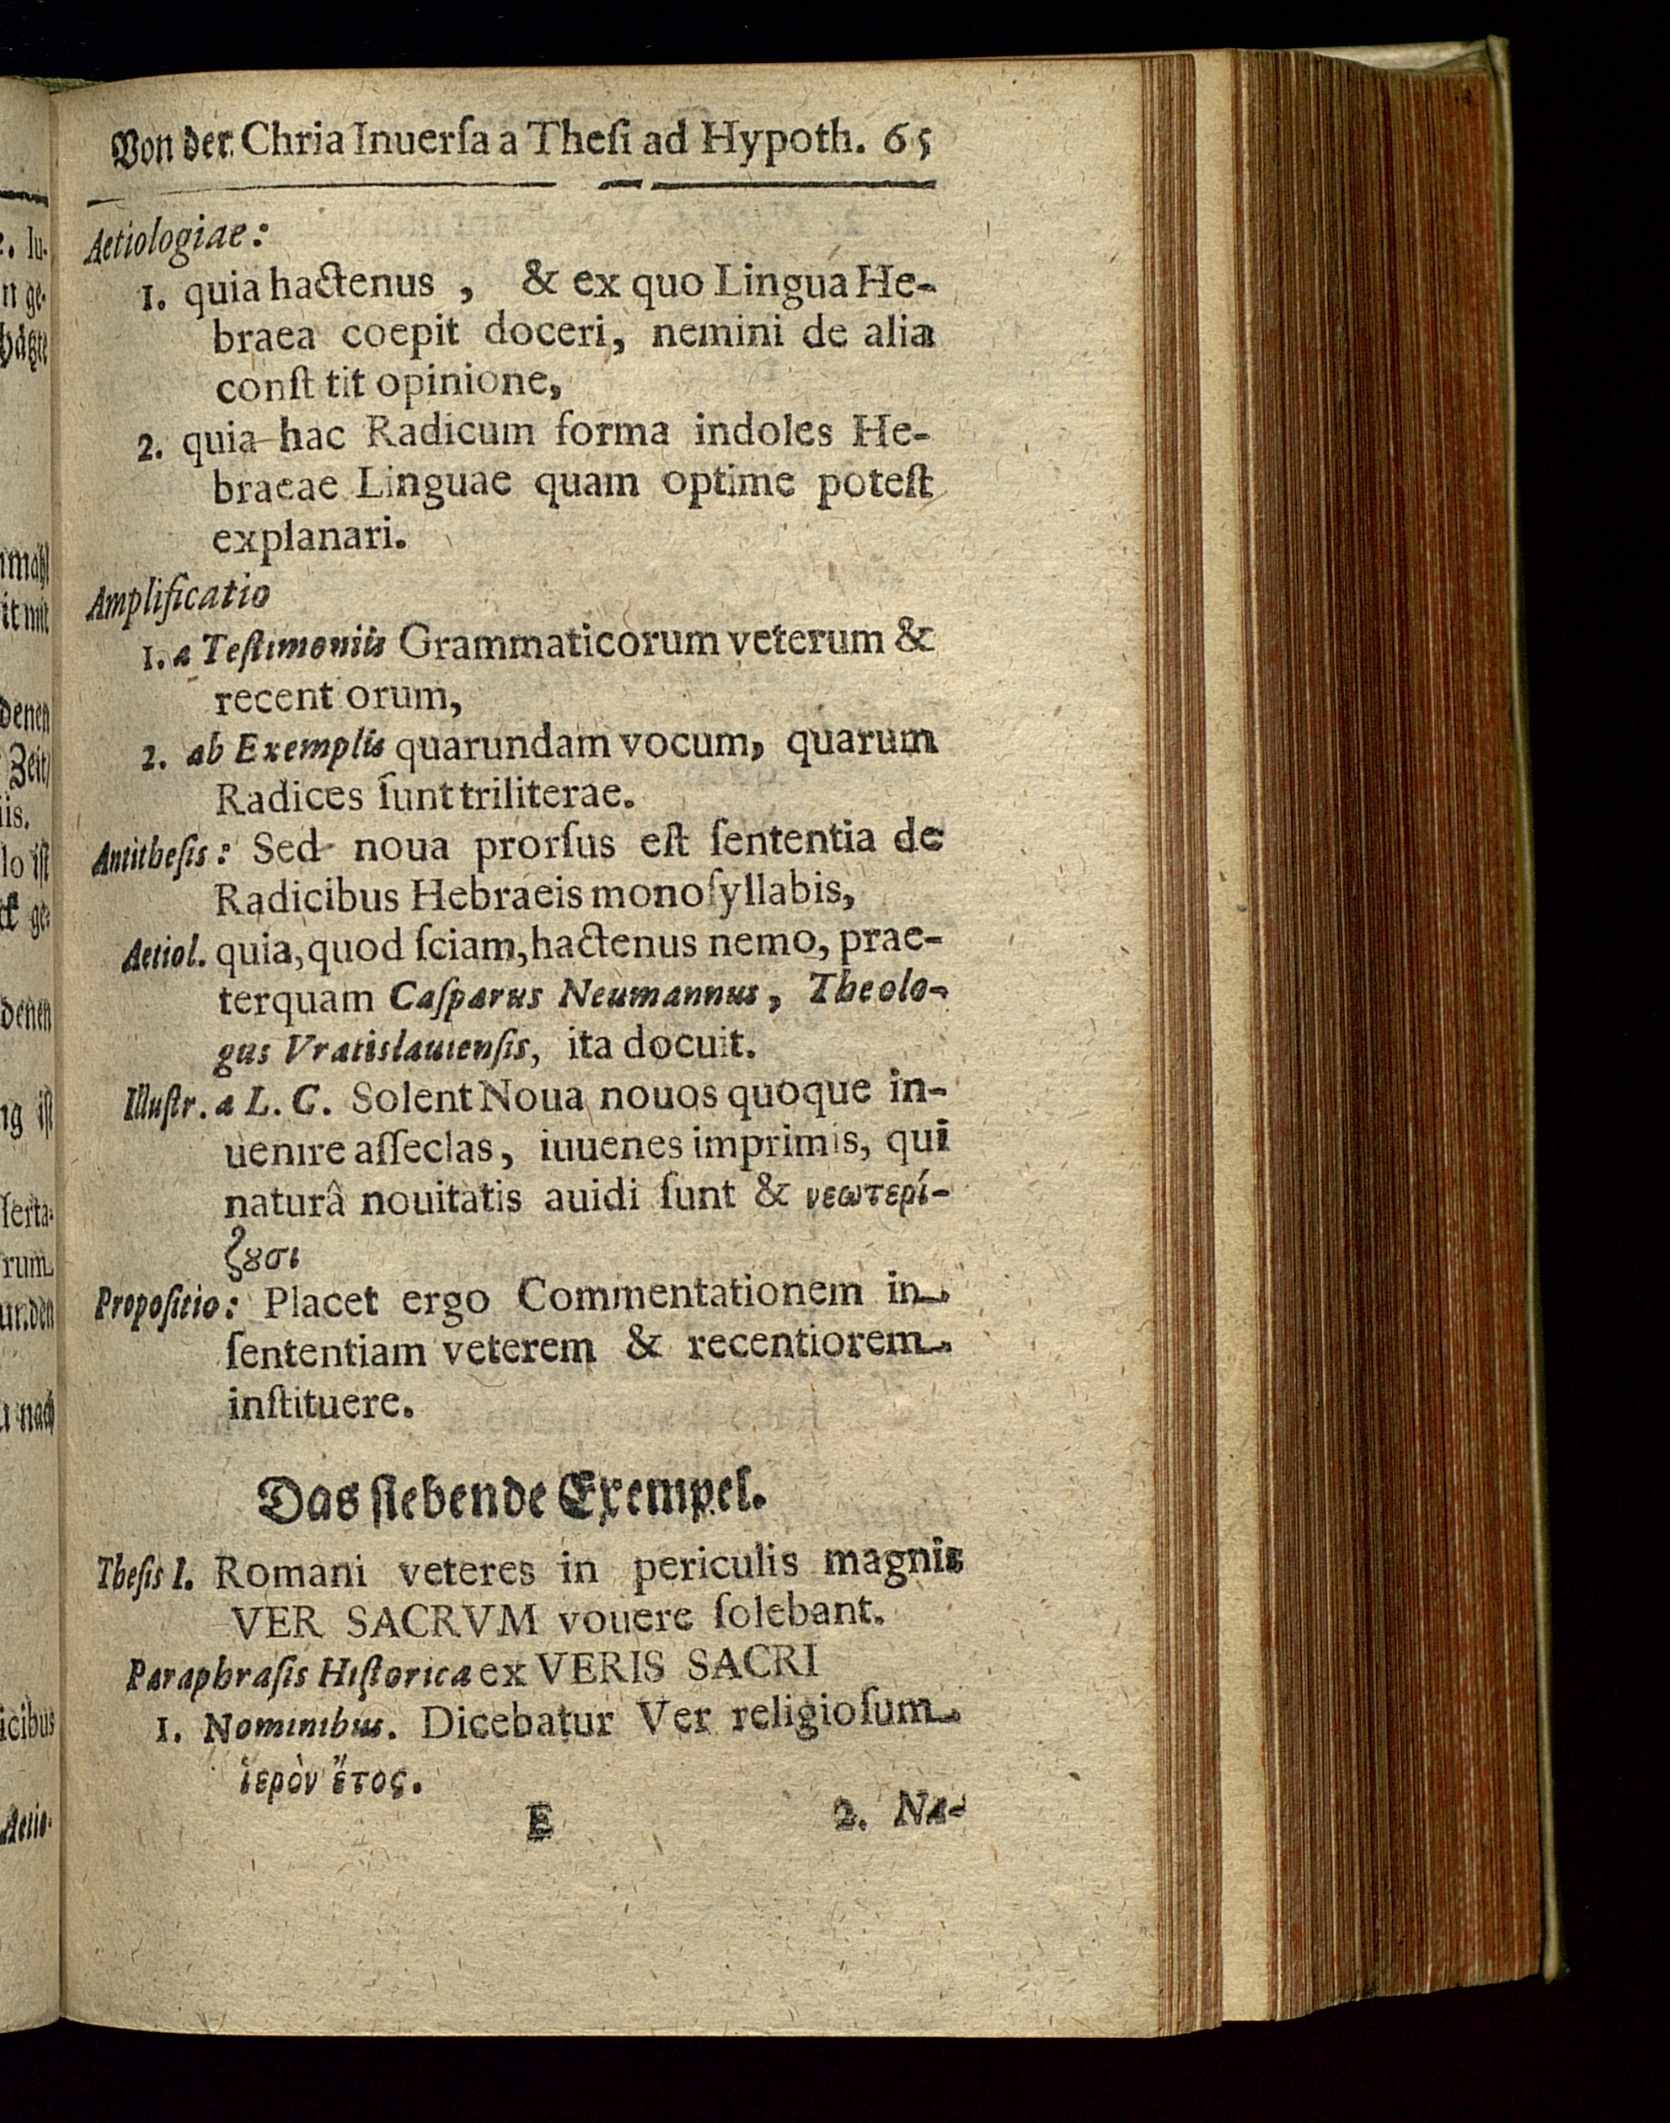 Von der Chria Inuerſa a Theſi ad Hypoth. 65
Aetiologiae:
1. quia hactenus, & ex quo Lingua He-
braea coepit doceri, nemini de alia
conſt tit opinione,
2. quia hac Radicum forma indoles He-
braeae Linguae quam optime poteſt
explanari.
Amplificatio
1. a Teſtimoniis Grammaticorum veterum &
recent orum,
2. ab Exemplis quarundam vocum, quarum
Radices ſunt triliterae.
Antitheſis: Sed noua prorſus eſt ſententia de
Radicibus Hebraeis monoſyllabis,
Aetiol. quia, quod ſciam, hactenus nemo, prae-
terquam Caſparus Neumannus, Theolo-
gus Vratislauienſis, ita docuit.
Illuſtr. a L. C. Solent Noua nouos quoque in-
uenire aſſeclas, iuuenes imprimis, qui
naturâ nouitatis auidi ſunt & νεωτερί-
ζȣσι
Propoſitio: Placet ergo Commentationem in
ſententiam veterem & recentiorem
inſtituere.
Das ſiebende Exempel.
Theſis I. Romani veteres in periculis magnis
VER SACRVM vouere ſolebant.
Paraphraſis Hiſtorica ex VERIS SACRI
1. Nominibus. Dicebatur Ver religioſum
ἱερὸν ἔτος.
E 2. Na-